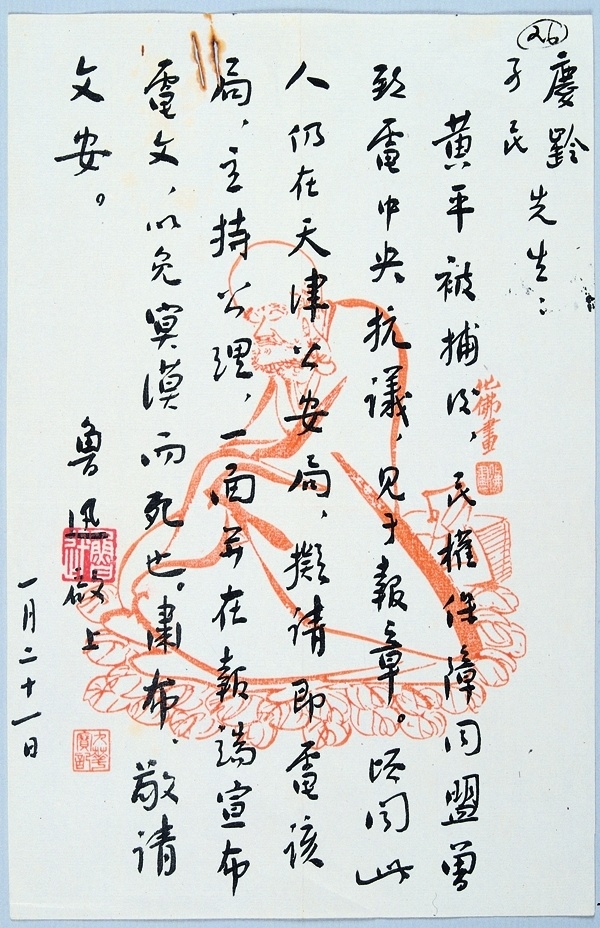 26
慶齡
子民 先生:
黄平被捕后，民權保障同盟曾
致電中央抗議，見于報章。頃聞此
人仍在天津公安局，擬請即電該
局，主持公理，一面並在報端宣布
電文，以免冥漠而死也。肅布、敬請
文安。
魯迅 啟上
一月二十一日
化佛畫